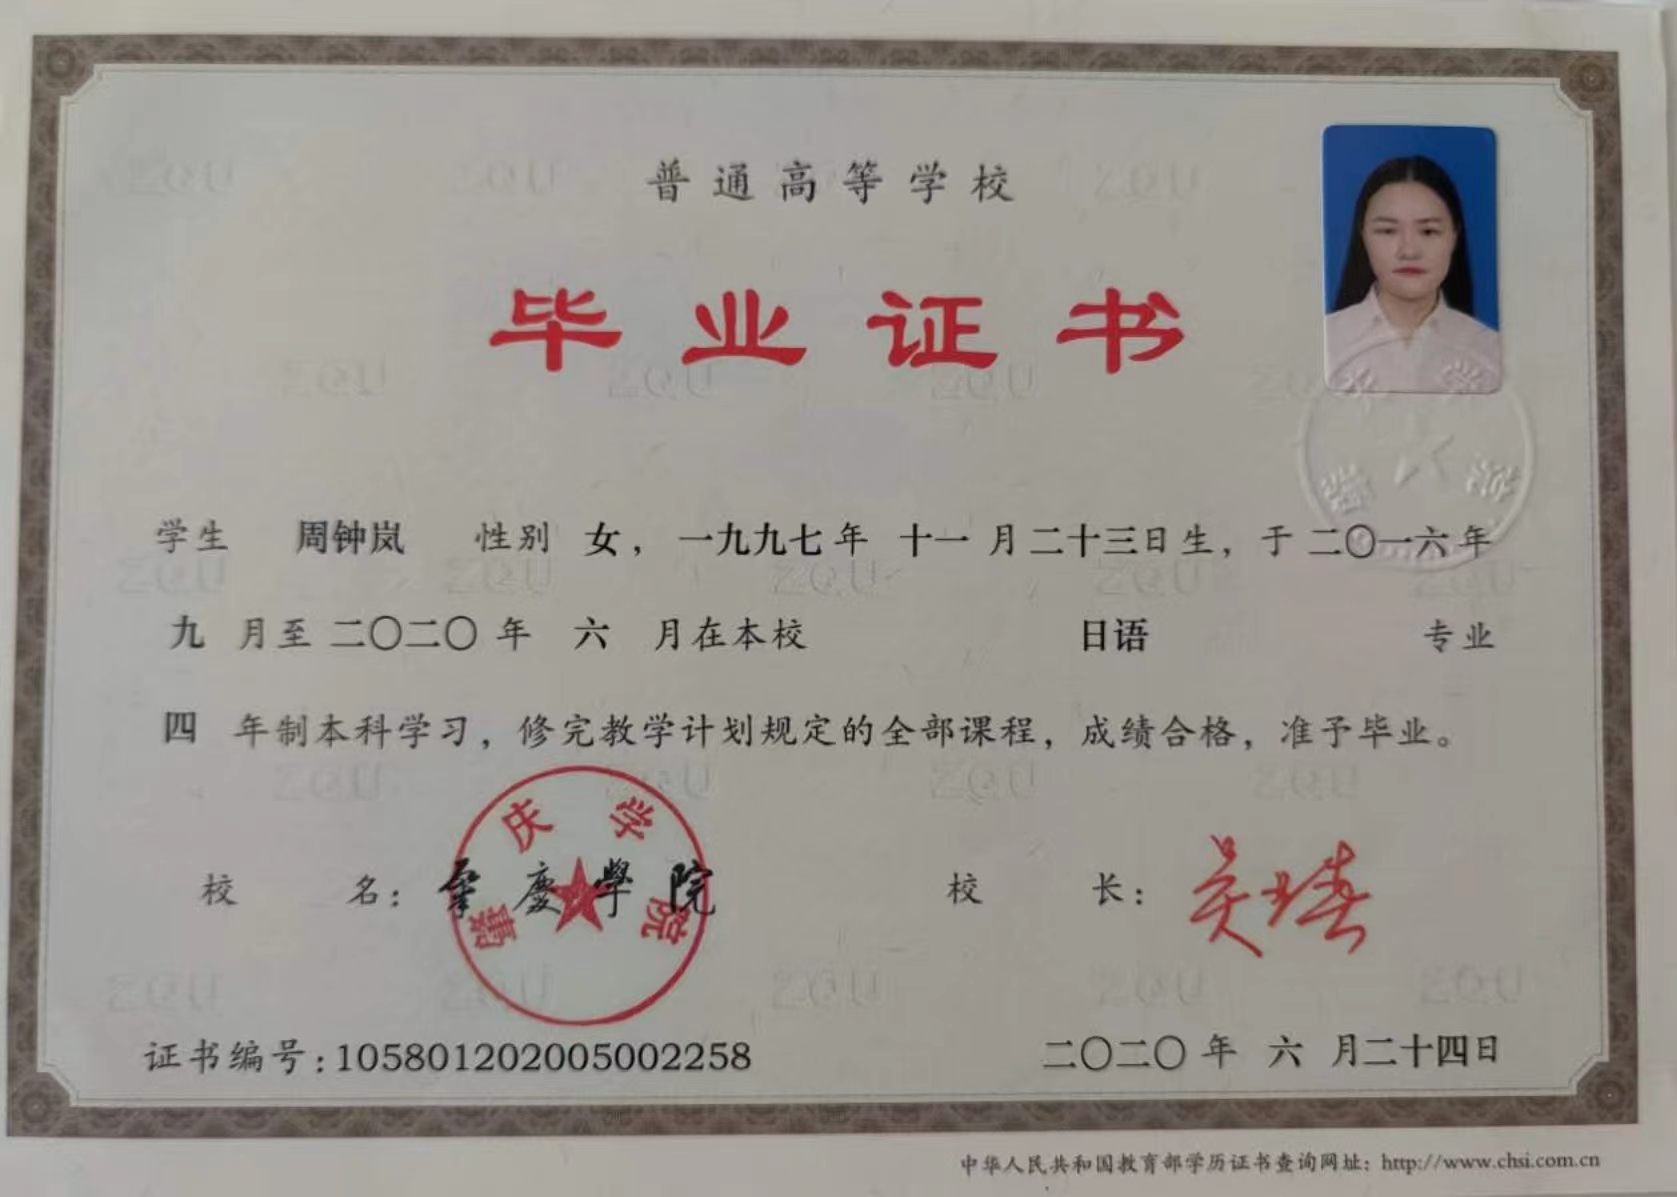 普通高等学校
毕业证书
学生 周钟岚 性别 女，一九九七年 十一 月二十三日生，于二〇一六年
九 月至 二〇二〇 年 六 月在本校 日语 专业
四 年制本科学习，修完教学计划规定的全部课程，成绩合格，准予毕业。
校 名：肇慶學院 校 长：
肇庆学院
证书编号：105801202005002258 二〇二〇 年 六 月二十四日
中华人民共和国教育部学历证书查询网址：http://www.chsi.com.cn